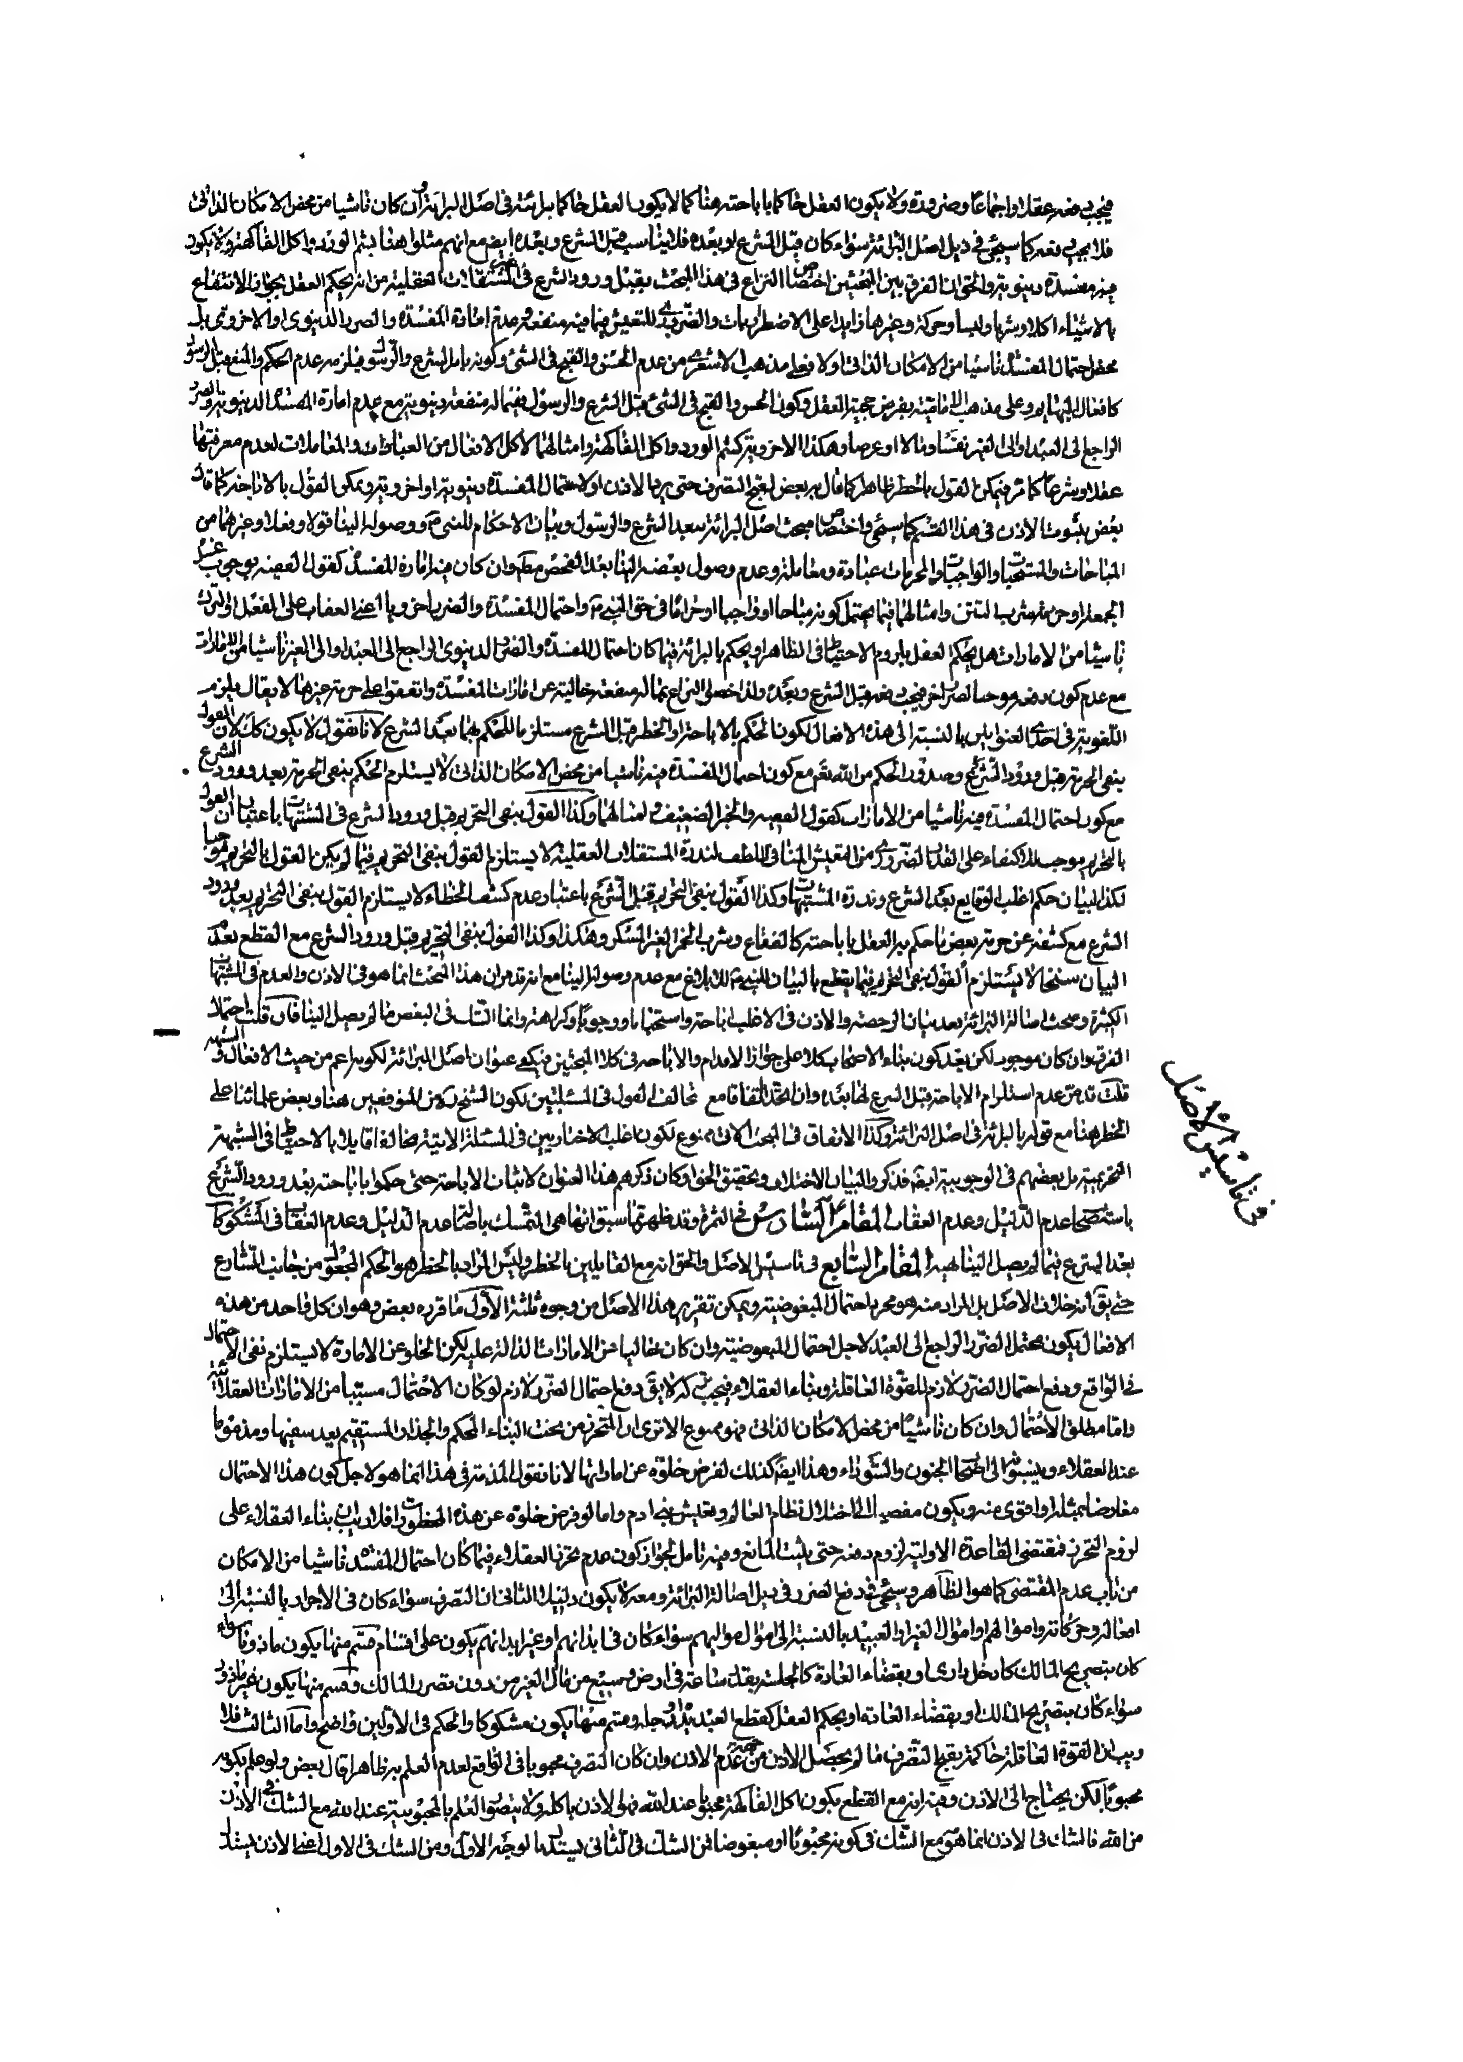 فيجب دفعه عقلا واجماعا وضرورة ولا يكون العقل حاكما باباحته هنا كما لا يكون العقل حاكما برائته فى اصل البرائة وان كان ناشيا من محض الامكان الذاتى
فلا يجب دفعه كما سيجئ فى ذيل اصل البرائة سواء كان قبل الشرع او بعده فلا يناسب قبل الشرع وبعده ايض مع انهم مثلوا هنا بشم الورد واكل الفاكهة ولا يكون
فيه مفسدة دنيوية والحق ان الفرق بين البحثين اختصاص النزاع فى هذا المبحث بقبل ورود الشرع فى المستقلات العقلية من انه يحكم العقل بجواز الانتفاع
بالاشياء اكلا وشربا ولبسا وحركة وغيرها زايدا على الاضطراريات والضرورى للتعيش فيما فيه منفعة وعدم امارة المفسدة والضرر الدنيوى او الاخروى بل
محض احتمال المفسدة ناشيا من الامكان الذاتى اولا فعلى مذهب الاشعرى من عدم الحسن والقبح فى الشئ وكونه بامر الشرع والرسول فيلزمه عدم الحكم والمنع قبل الرسول
كافعال البهايم وعلى مذهب الامامية بفرض حجية العقل وكون الحسن والقبح فى الشئ قبل الشرع والرسول ففيما له منفعة دنيوية مع عدم امارة المفسدة الدنيوية والضرر
الراجع الى العبد او الى الغير نفسا ومالا او عرضا وهكذا الاخروية كشم الورد واكل الفاكهة وامثالهما لا كل الافعال من العبادات والمعاملات لعدم معرفتها
عقلا وشرعا كما مر فيمكن القول بالحظر ظاهرا كما قال به بعض لقبح التصرف حتى يرد الاذن او لاحتمال المفسدة دنيوية او اخروية ويمكن القول بالاباحة كما قال
بعض بثبوت الاذن فى هذا القسم كما سيجئ واختصاص مبحث اصل البرائة ببعد الشرع والرسول وبيان الاحكام للنبى ووصوله الينا قولا وفعلا وغيرهما من
المباحات والمستحبات والواجبات والمحرمات عبادة ومعاملة وعدم وصول بعضه الينا بعد الفحص مط وان كان فيه امارة المفسدة كقول الفقيه بوجوب غسل
الجمعة او حرمة شرب التتن وامثالهما فيما يحتمل كونه مباحا او واجبا او حراما فى حق النبى واحتمال المفسدة والضرر اخرويا اعنى العقاب على الفعل او الترك
ناشيا من الامارات هل يحكم العقل بلزوم الاحتياط فى الظاهر او يحكم بالبرائة فيما كان احتمال المفسدة والضرر الدنيوى الراجع الى العبد او الى الغير ناشيا من الامارات
مع عدم كون دفعه موجبا لضرر اخر فيجب دفعه قبل الشرع وبعده ولذا خصوا النزاع بما له منفعة خالية عن امارات المفسدة واتفقوا على حرمة غيرها لا يقال يلزم
اللغوية فى احدى العنوانين بالنسبة الى هذه الافعال لكون الحكم بالاباحة او الحظر قبل الشرع مستلزما للحكم بهما بعد الشرع لانا نقول لا يكون كك لان القول
بنفى الحرمة قبل ورود الشرع وصدور الحكم من الله تع مع كون احتمال المفسدة فيه ناشيا من محض الامكان الذاتى لا يستلزم الحكم بنفى الحرمة بعد ورود الشرع
مع كون احتمال المفسدة فيه ناشيا من الامارات كقول الفقيه والخبر الضعيف وامثالهما وكذا القول بنفى التحريم قبل ورود الشرع فى المشتبهات باعتبار ان القول
بالتحريم موجب للاكتفاء على القدر الضرورى من التعيش المنافى للطف لندرة المستقلات العقلية لا يستلزم القول بنفى التحريم فيما لم يكن القول بالتحريم موجبا
لكذا لبيان حكم اغلب الوقايع بعد الشرع وندرة المشتبهات وكذا القول بنفى التحريم قبل الشرع باعتبار عدم كشف الخطاء لا يستلزم القول بنفى التحريم بعد ورود
الشرع مع كشفه عن حرمة بعض ما حكم به العقل باباحته كالفقاع وشرب الخمر الغير المسكر وهكذا وكذا القول بنفى التحريم قبل ورود الشرع مع القطع بعدم
البيان سنخا لا يستلزم القول بنفى التحريم فيما يقطع بالبيان للنبى للابلاغ مع عدم وصوله الينا مع انه قد مر ان هذا البحث انما هو فى الاذن والعدم فى المشتبهات
الكثيرة ومبحث اصالة البرائة بعد بيان الرخصة والاذن فى الاغلب اباحة واستحبابا ووجوبا وكراهة وانما الشك فى البعض ما لم يصل الينا فان قلت احتمال
الفرق وان كان موجود لكن بعد كون بناء الاصحاب كلا على جواز الاقدام والاباحة فى كلا المبحثين فيكفى عنوان اصل البرائة لكونه اعم من حيث الافعال والشبهة
قلت قد مر عدم استلزام الاباحة قبل الشرع لما بعده وان اتحد اتفاقا مع تخالف القول فى المسئلتين لكون الشيخ ره من المتوقفين هنا وبعض علمائنا على
الحظر هنا مع قوله بالبرائة فى اصل البرائة وكذا الاتفاق فى المبحث الاتى ممنوع لكون اغلب الاخباريين فى المسئلة الاتية مخالفا قايلا بالاحتياط فى الشبهة
التحريمية بل بعضهم فى الوجوبية ايضا فذكر والبيان الاختلاف وتحقيق الحق وكان ذكرهم هذا العنوان لاثبات الاباحة حتى حكموا باباحته بعد ورود الشرع
باستصحاب عدم الدليل وعدم العقاب المقام السادس فى الثمرة وقد ظهر مما سبق انها هى التمسك باصالة عدم الدليل وعدم العقاب فى المشكوكات
بعد الشرع فيما لم يصل الينا فيه المقام السابع فى تاسيس الاصل والحق انه مع القايلين بالحظر وليس المراد بالحظر هو الحكم المجعول من جانب الشارع
حتى يق انه خلاف الاصل بل المراد منه هو مجرد احتمال المبغوضية ويمكن تقرير هذا الاصل من وجوه ثلثة الاول ما قرره بعض وهو ان كل واحد من هذه
الافعال يكون محتمل الضرر الراجع الى العبد لاجل احتمال المبغوضية وان كان خاليا من الامارات الدالة عليه لكن الخلو عن الامارة لا يستلزم نفى الاحتمال
فى الواقع ودفع احتمال الضرر لازم للقوة العاقلة وبناء العقلاء فيجب تركه لا يق دفع احتمال الضرر لازم لو كان الاحتمال مسببا من الامارات العقلائية
واما مطلق الاحتمال وان كان ناشيا من محض الامكان الذاتى فهو ممنوع الا ترى ان المتحرز من تحت البناء المحكم والجدار المستقيم يعد سفيها ومذموما
عند العقلاء وينسبونه الى اصحاب الجنون والسوداء وهذا ايضا كذلك لفرض خلوه عن اماراتها لانا نقول المذمة فى هذا انما هو لاجل كون هذا الاحتمال
معارضا بمثله او اقوى منه ويكون مفضيا الى اختلال نظام العالم وتعيش بنى ادم واما لو فرض خلوه عن هذه المحظورات فلا ريب فى بناء العقلاء على
لزوم التحرز فمقتضى القاعدة الاولية لزوم دفعه حتى يثبت المانع وفيه تامل لجواز كون عدم تحرز العقلاء فيما كان احتمال المفسدة ناشيا من الامكان
من باب عدم المقتضى كما هو الظاهر وسيجئ فى دفع الضرر فى ذيل اصالة البرائة ومعه لا يكون دليلا الثانى ان التصرف سواء كان فى الاحرار بالنسبة الى
افعاله وحركاته واموالهم واموال الغير او العبيد بالنسبة الى اموال مواليهم سواء كان فى ابدانهم او غير ابدانهم يكون على اقسام قسم منها يكون ماذونا سواء
كان بتصريح المالك كادخل دارى او بقضاء العادة كالجلسة بقدر ساعة فى ارض وسيع من مال الغير من دون تضرر المالك وقسم منها يكون غير ماذون
سواء كان بتصريح المالك او بقضاء العادة او بحكم العقل كقطع العبد يده او رجله وقسم منها يكون مشكوكا والحكم فى الاولين واضح واما الثالث فلا
ريب ان القوة العاقلة حاكمة بقبح التصرف ما لم يحصل الاذن من جهة عدم الاذن وان كان التصرف محبوبا فى الواقع لعدم العلم به ظاهرا قال بعض ولو علم بكونه
محبوبا لكن يحتاج الى الاذن وفيه انه مع القطع بكون اكل الفاكهة محبوبا عند الله فهو الاذن باكله ولا يتصور العلم بالمحبوبية عند الله مع الشك فى الاذن
من الله فالشك فى الاذن انما هو مع الشك فى كونه محبوبا او مبغوضا فمن الشك فى الثانى يستدل بالوجه الاول ومن الشك فى الاول اعنى الاذن يستدل
فى تاسيس الاصل